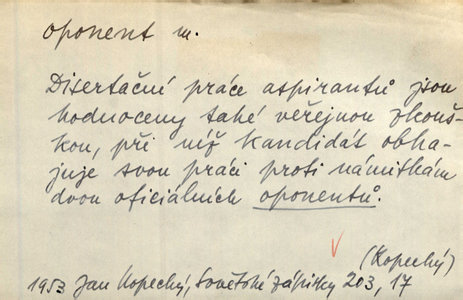 oponent m.
Disertační práce aspirantů jsou
hodnoceny také veřejnou zkouš-
kou, při níž kandidát obha-
juje svou práci proti námitkám
dvou oficiálních oponentů.
(Kopecký)
1953 Jan Kopecký, Sovětské zápisky 203, 17